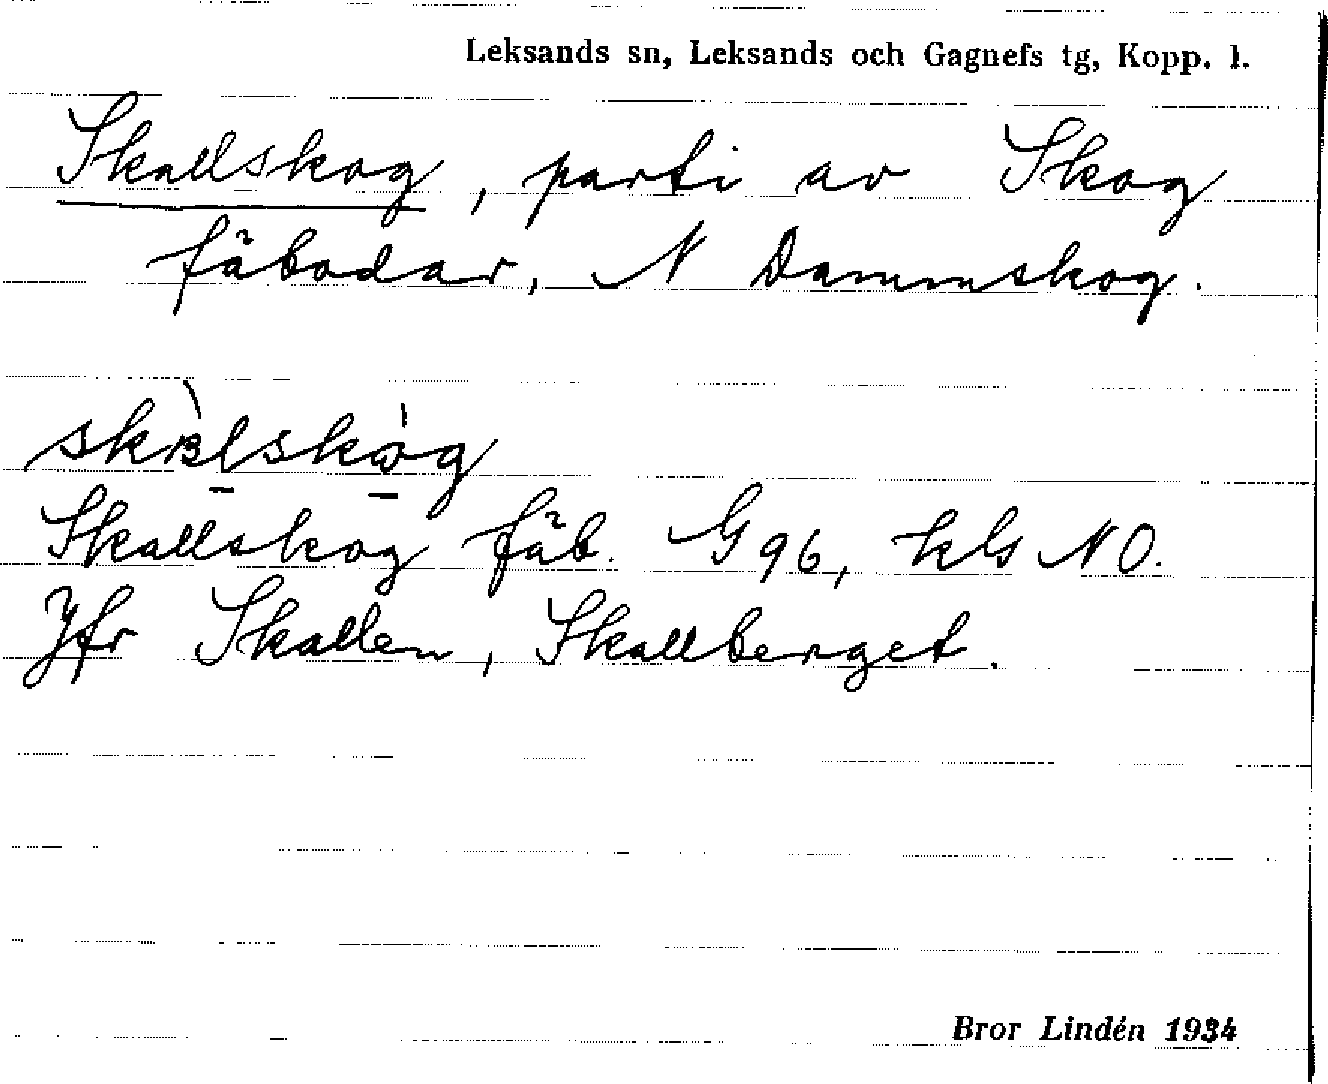 Leksands sn, Leksands och Gagnefs tg, Kopp. l.
Skallskog, parti av Skog
fäbodar, N Dammskog.
Skallskog fäb. G96, kls NO.
Jfr Skallen, Skallberget.
Bror Lindén 1934